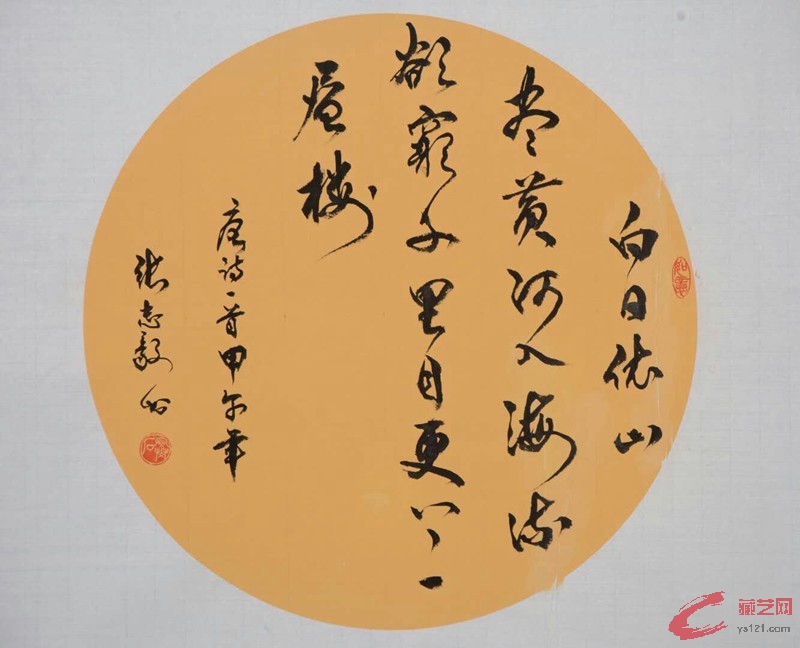 白日依山
尽黄河入海流
欲穷千里目更上一
层楼
唐诗一首甲午年
张志毅书
藏艺网
ys121.com